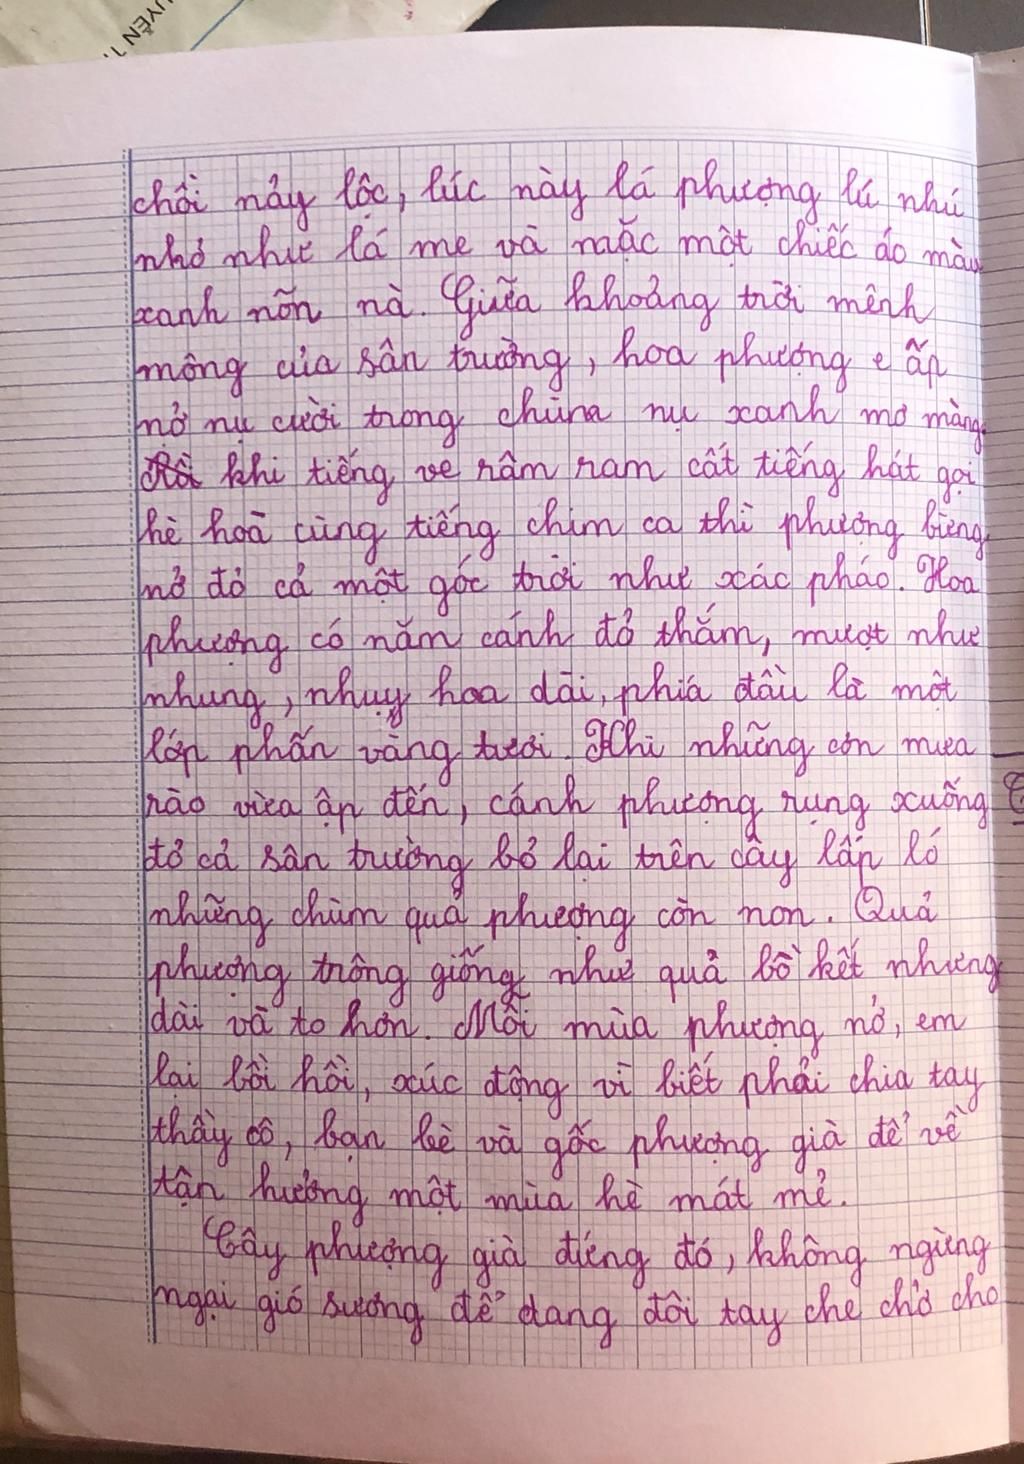 UYỀN T
chồi nảy lộc, lúc này lá phượng lú nhú
nhỏ như lá me và mặc một chiếc áo màu
xanh nõn nà. Giữa khoảng trời mênh
mông của sân trường, hoa phượng e ấp
nở nụ cười trong chùm nụ xanh mơ màng.
Rồi khi tiếng ve râm ram cất tiếng hát gọi
hè hoà cùng tiếng chim ca thì phượng bừng
nở đỏ cả một góc trời như xác pháo. Hoa
phượng có năm cánh đỏ thắm, mượt như
nhung, nhuỵ hoa dài, phía đầu là một
lớp phấn vàng tươi. Khi những cơn mưa
rào vừa ập đến, cánh phượng rụng xuống
đỏ cả sân trường bỏ lại trên cây lấp ló
những chùm quả phượng còn non. Quả
phượng trông giống như quả bồ kết nhưng
dài và to hơn. Mỗi mùa phượng nở, em
lại bồi hồi, xúc động vì biết phải chia tay
thầy cô, bạn bè và gốc phượng già để về
tận hưởng một mùa hè mát mẻ.
Cây phượng già đứng đó, không ngừng
ngại gió sương để dang đôi tay che chở cho